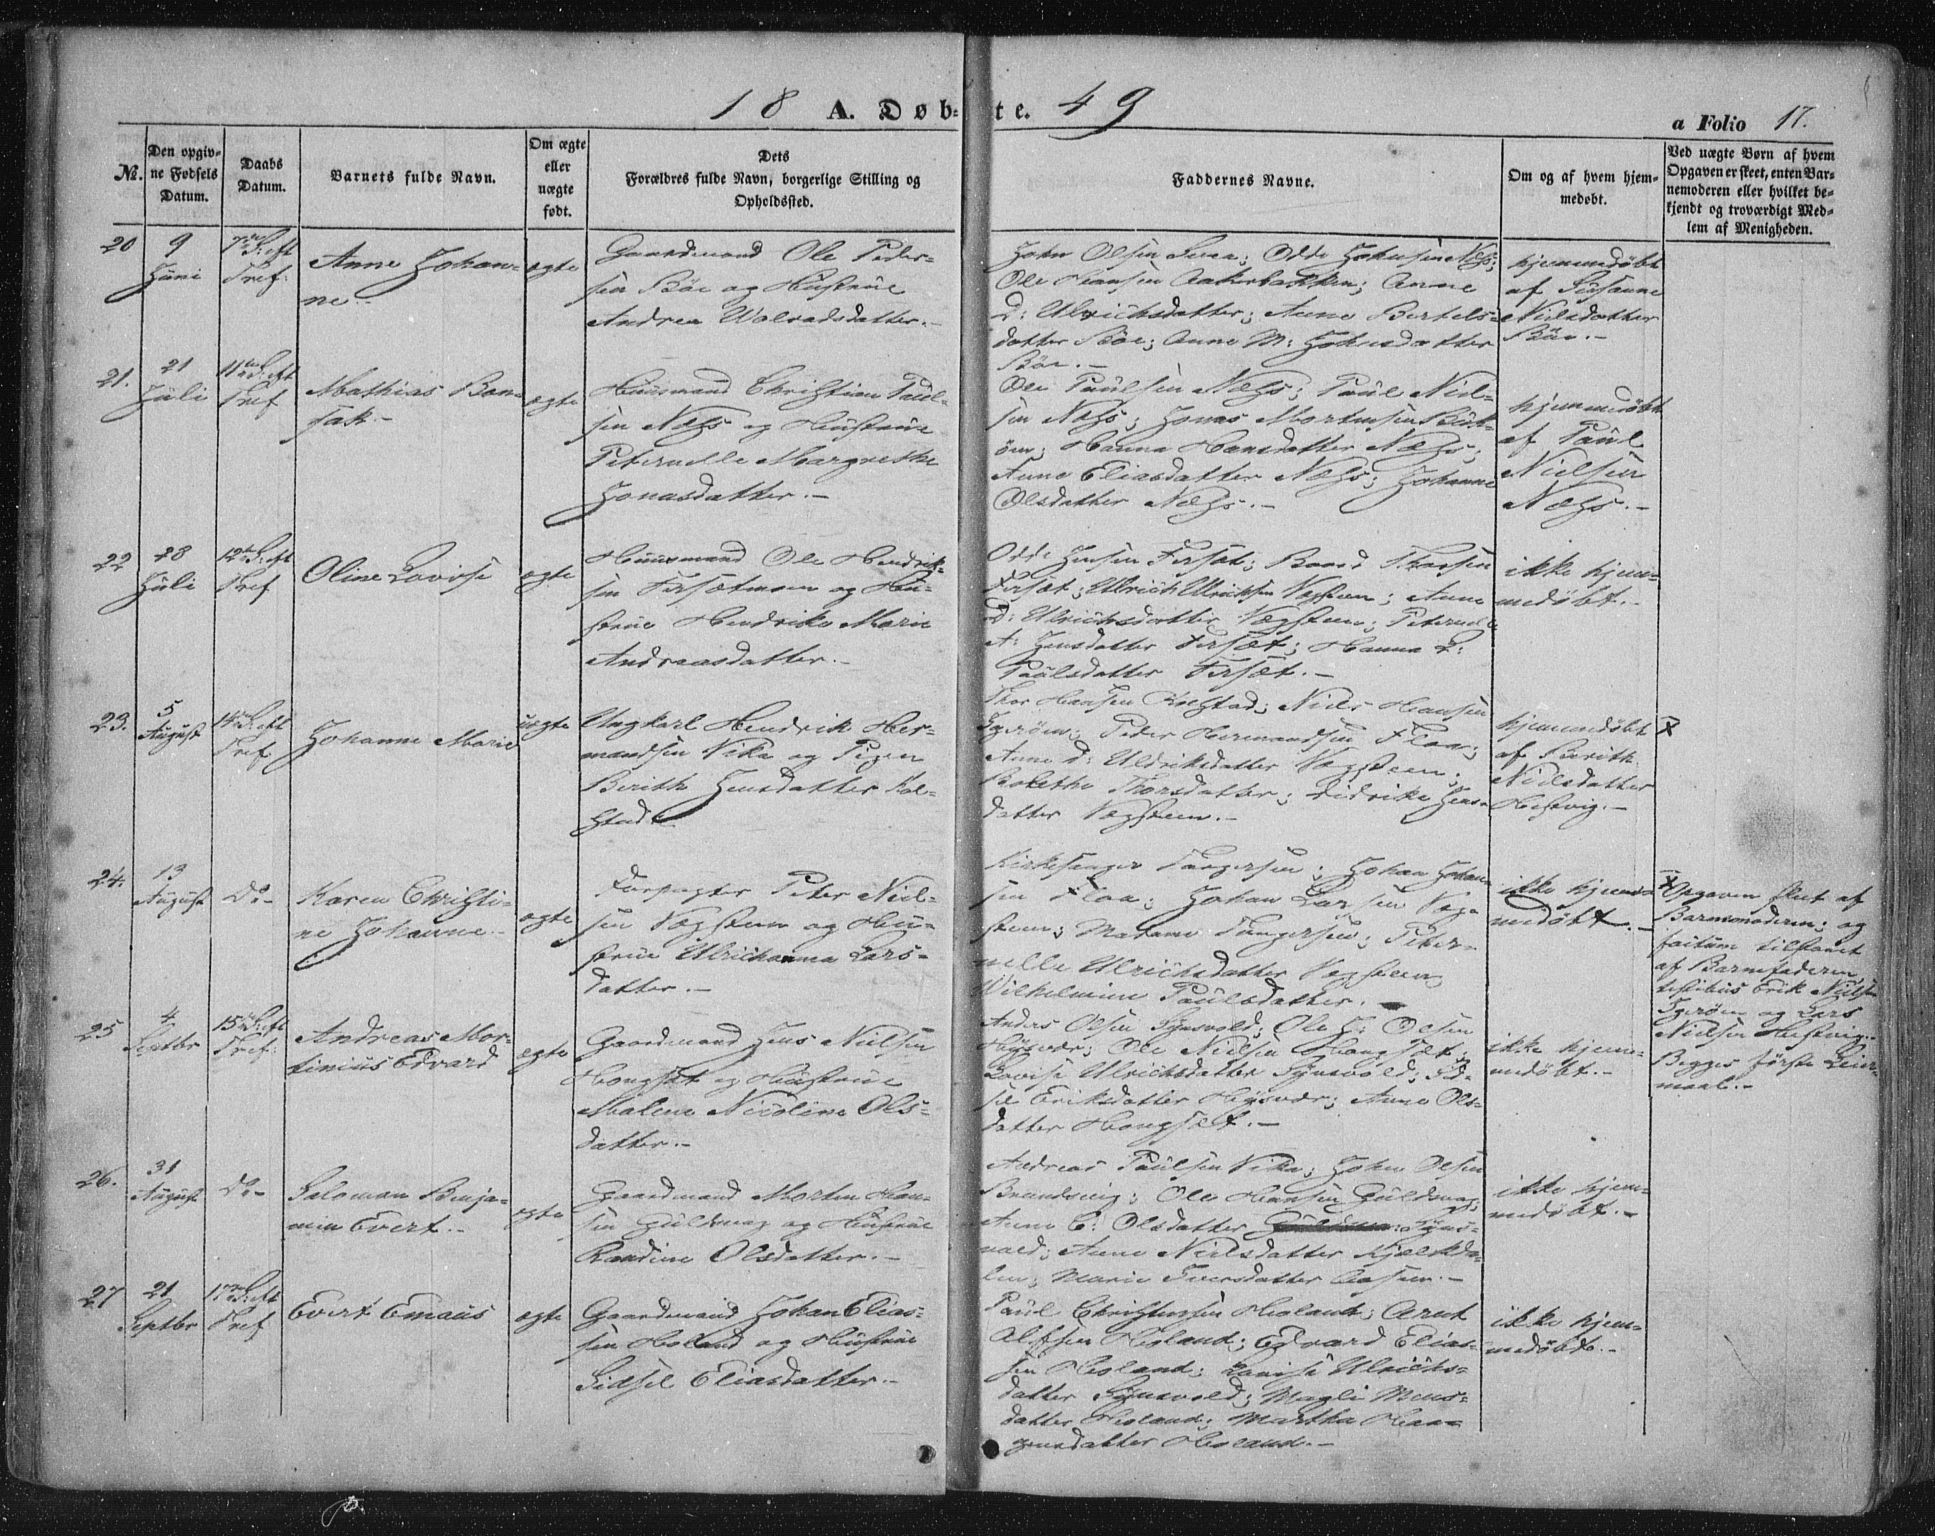 18 A. Døb- te. 49
a Folio 17.
№.
Den opgiv-
ne Fødsels
Datum.
Daabs
Datum.
Barnets fulde Navn.
Om ægte
eller
uægte
født.
Dets
Forældres fulde Navn, borgerlige Stilling og
Opholdssted.
Faddernes Navne.
Om og af hvem hjem-
medøbt.
Ved uægte Børn af hvem
Opgaven er skeet, enten Bar-
nemoderen eller hvilket be-
kjendt og troværdigt Med-
lem af Menigheden.
20
9
Juni
7de S: eft
Tref:
Anne Johan-
ne.
ægte
Gaardmand Ole Peder-
sen Böe og Hustrue
Andrea Walradsdatter.-
John Olsen; Odde Johnsen Næss;
Ole Hansen Aakerbakken; Anne
D: Ulrichsdatter; Anne Bertels-
datter Böe; Anne M: Johnsdatter
Böe.-
hjemmedöbt
af Susanne
Nielsdatter
Böe.-
21.
21
Juli
11te S: eft
Tref
Mathias Bon-
sak.-
ægte
Huusmand Christian Paul-
sen Næss og Hustrue
Peternelle Margrethe
Jonasdatter.-
Ole Paulsen Næss; Paul Niel-
sen Næss; Jonas Mortensen
Hanna Hansdatter Næss;
Anne Eliasdatter Næss; Johanne
Olsdatter Næss.-
hjemmedöbt
af Paul
Nielsen
Næss.-
22
28
Juli
12te S: eft
Tref
Oline Lovise
ægte
Huusmand Ole Hendrik-
sen Forsætmoen og Hu-
strue Hendrikke Marie
Andreasdatter.-
Odde Jensen Forsæt; Baard Thorsen
Forsæt; Ulrich Ulrichsen Vegsteen; Anne
D: Ulrichsdatter Vegsteen; Peternelle
A: Jensdatter Forsæt; Hanna L:
Paulsdatter Forsæt.-
ikke hjem-
medöbt.-
23.
5
August
14de S: eft
Tref.
Johanne Marie
uægte
Ungkarl Hendrik Her-
mandsen Vika og Pigen
Berith Jensdatter Kol-
stad.
Thor Hansen Kolstad; Niels Hansen
Igeröen; Peder Hermandsen Floa;
Anne D: Uldriksdatter Vegsteen;
Bolethe Thorsdatter; Didrike Jens-
datter Vegsteen.-
hjemmedöbt
af Berith
Nielsdatter
Hestvig.-
x
24.
13
August
Do-
Karen Christi-
ne Johanne.
ægte
Forpagter Peter Niel-
sen Vegsteen og Hu-
strue Ulrichanna Lars-
datter.-
Kirkesanger Tangersen; Johan Johan-
sen Floa; Johan Larsen Veg-
steen; Madame Tangersen; Peter-
nelle Ulrichsdatter Vegsteen
Wilhelmine Paulsdatter.-
ikke hjem-
medöbt.-
x Opgaven skeet af
Barnemoderen; og
factum tilstaaet
af Barnefaderen,
testibus Erik Nielsen
Igeröen og Lars
Nielsen Hestvig.
Begges förste Leier-
maal.-
25
4
Septbr
15de S: eft
Tref:
Andreas Mor-
tinius Edvard
ægte
Gaardmand Jens Nielsen
Hongsæt og Hustrue
Malene Nicoline Ols-
datter.-
Anders Olsen Synsvold; Ole J: Olsen
Hysvær; Ole Nielsen Hongsæt;
Lovise Ulrichsdatter Synsvold; Ed-
sel Eriksdatter Hysvær; Anne Ols-
datter Hongsæt.-
ikke hjem-
medöbt.-
26.
31
August
Do-
Salomon Benja-
min Evert.-
ægte
Gaardmand Morten Han-
sen Guldsvag og Hustrue
Randine Olsdatter.-
Andreas Paulsen Vika; John Olsen
Brændsvig; Ole Hansen Guldsvag;
Anne C: Olsdatter Syns-
vold; Anne Nielsdatter Kjelkda-
len; Marie Iversdatter Aasen.-
ikke hjem-
medöbt.-
27
21
Septbr
17de S: eft
Tref
Evert Emaus
ægte
Gaardmand Johan Elias-
sen Høland og Hustrue
Sidsel Eliasdatter.-
Paul Christensen Høland; Arnt
Alfsen Høland; Edvard Elias-
sen Høland; Lovise Ulrichs-
datter Synsvold; Magli Mons-
datter Høland; Martha Haa-
gensdatter Høland.-
ikke hjem-
medöbt.-